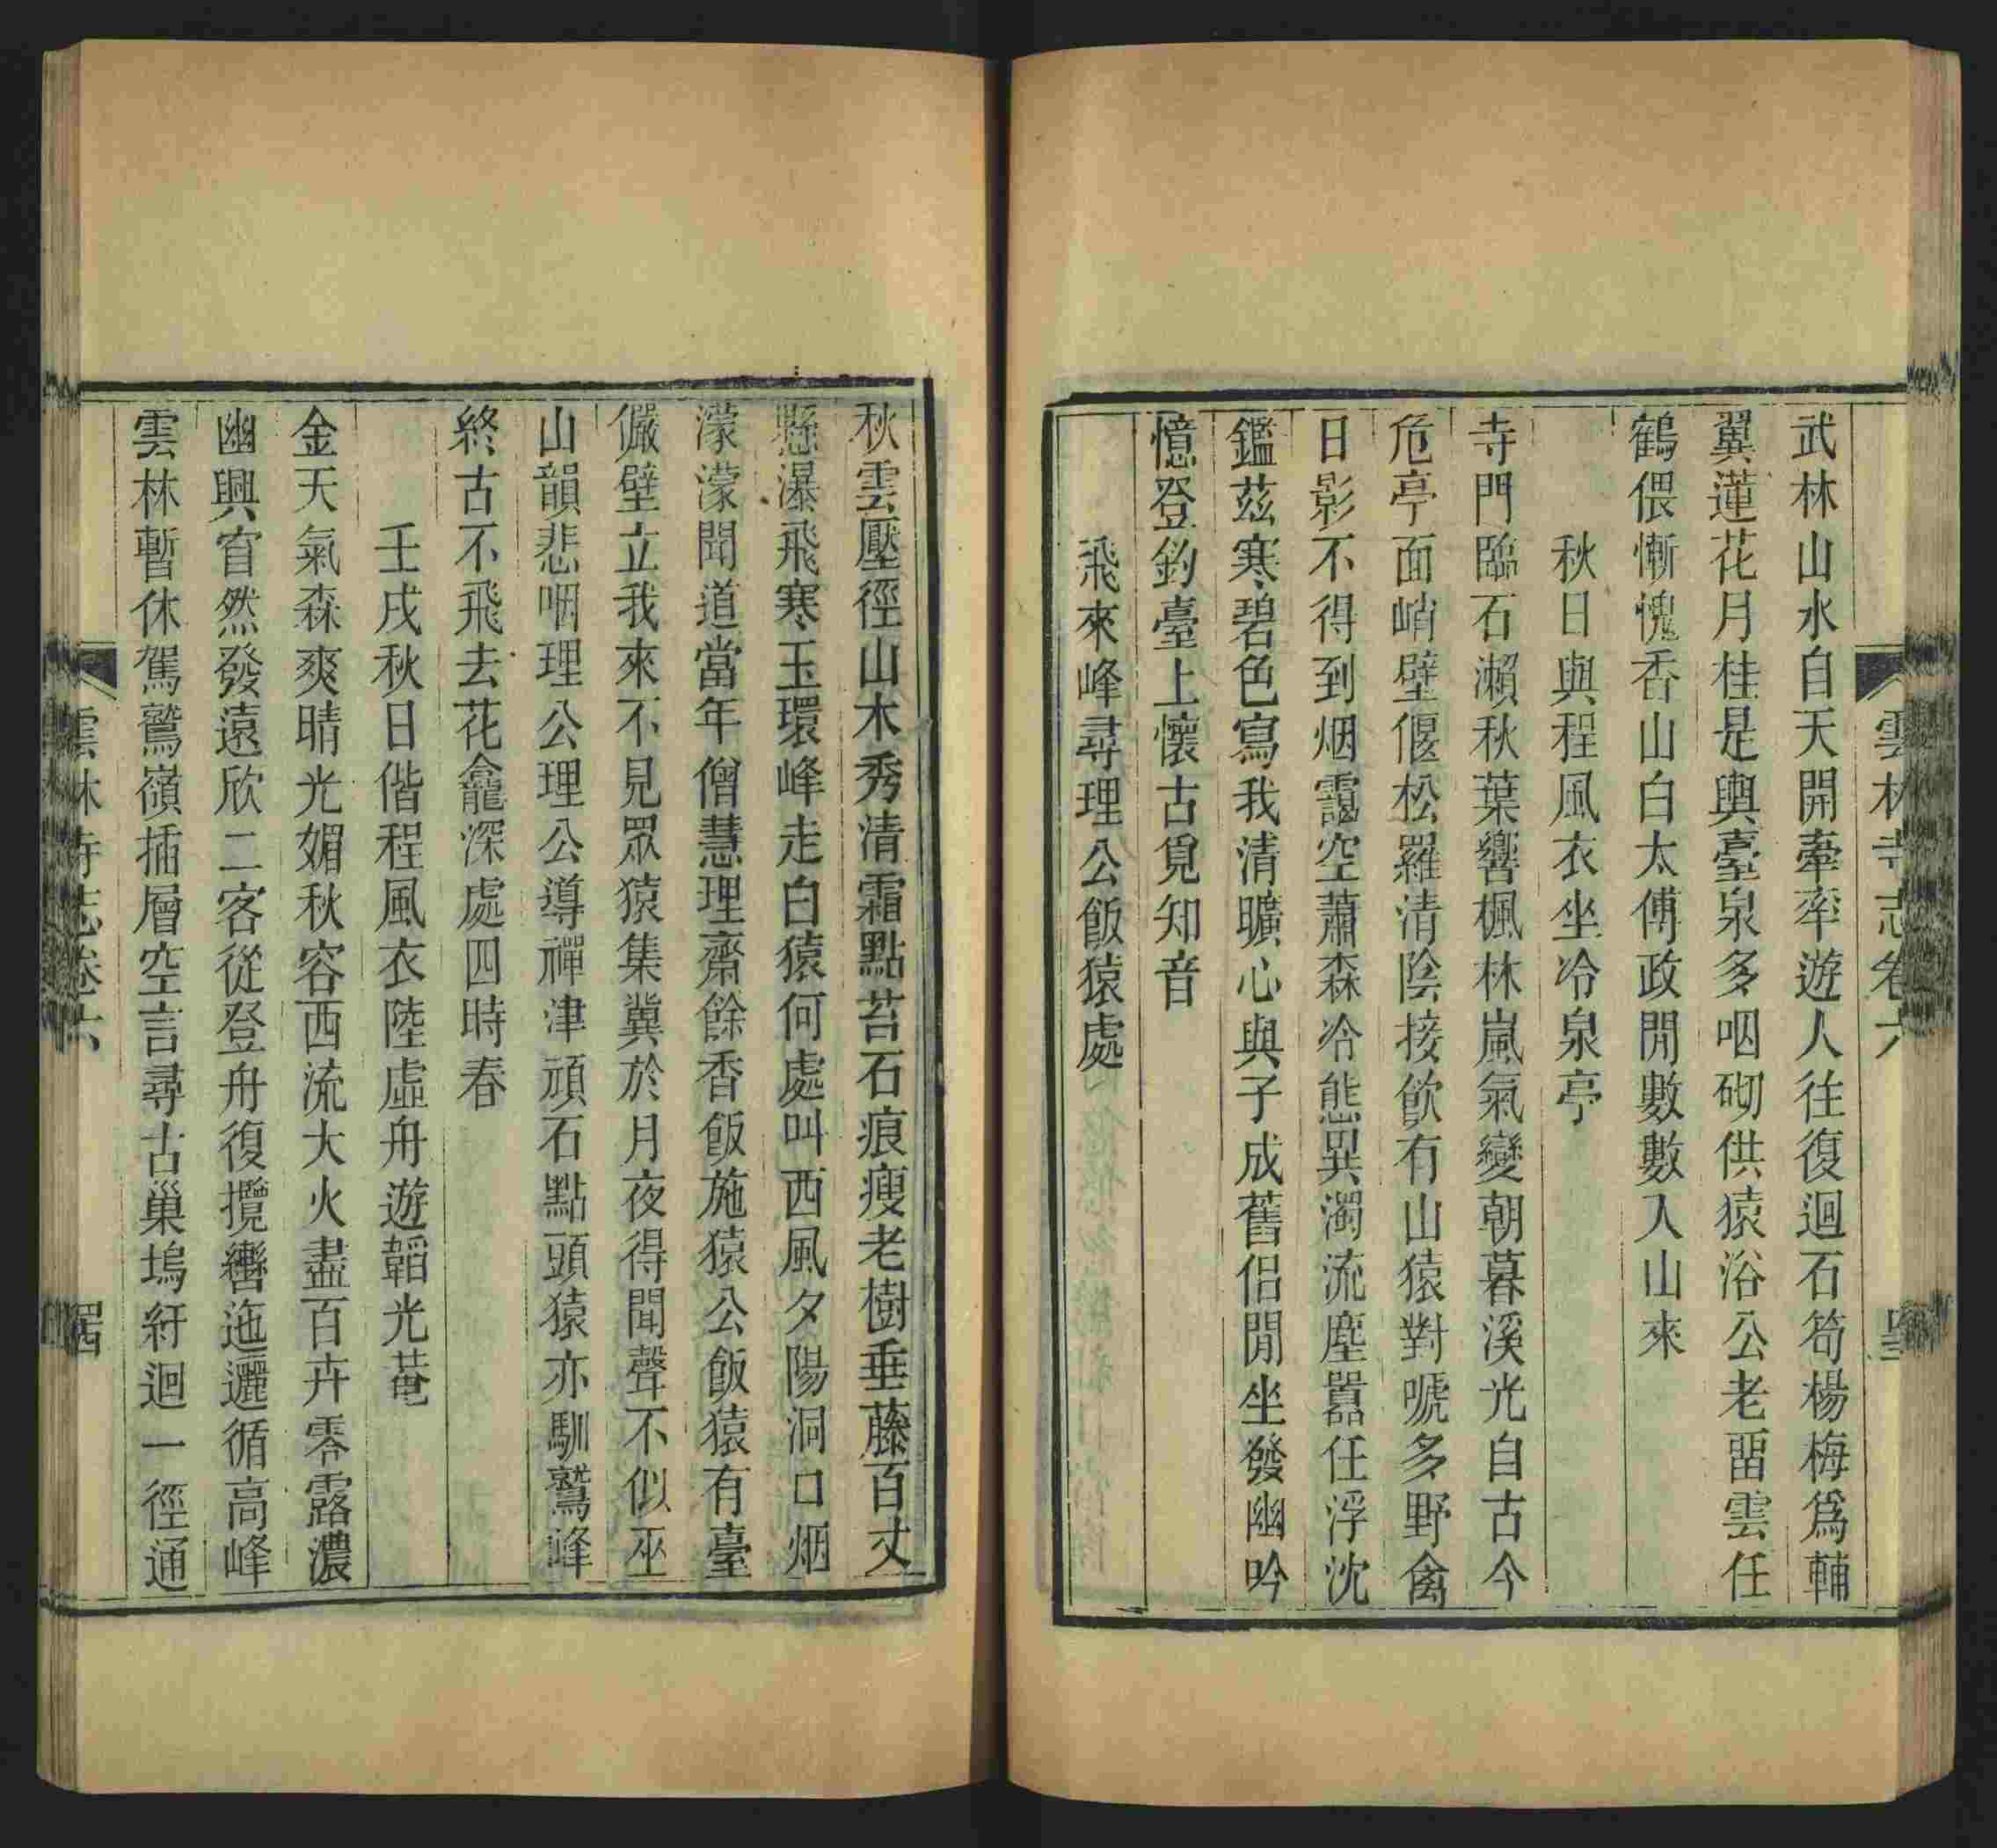 雲林寺志卷六
武林山水自天開牽率遊人往復迴石筍楊梅爲輔
翼蓮花月桂是輿臺泉多咽砌供猿浴公老畱雲任
鶴偎慚愧香山白太傅政閒數數入山來
秋日與程風衣坐冷泉亭
寺門臨石瀨秋葉響楓林嵐氣變朝暮溪光自古今
危亭面峭壁偃松羅清陰接飲有山猿對唬多野禽
日影不得到烟靄空蕭森冷態異濁流塵囂任浮沈
鑑茲寒碧色寫我清曠心與子成舊侶閒坐發幽吟
憶登釣臺上懷古覓知音
飛來峰尋理公飯猿處
秋雲壓徑山木秀清霜點苔石痕瘦老樹垂藤百丈
懸瀑飛寒玉環峰走白猿何處叫西風夕陽洞口烟
濛濛聞道當年僧慧理齋餘香飯施猿公飯猿有臺
儼壁立我來不見眾猿集冀於月夜得聞聲不似巫
山韻悲咽理公理公導禪津頑石點頭猿亦馴鷲峰
終古不飛去花龕深處四時春
壬戌秋日偕程風衣陸虛舟遊韜光菴
金天氣森爽晴光媚秋容西流大火盡百卉零露濃
幽興窅然發遠欣二客從登舟復攬轡迤邐循高峰
雲林暫休駕鷲嶺插層空言尋古巢塢紆迴一徑通
雲林寺志卷六